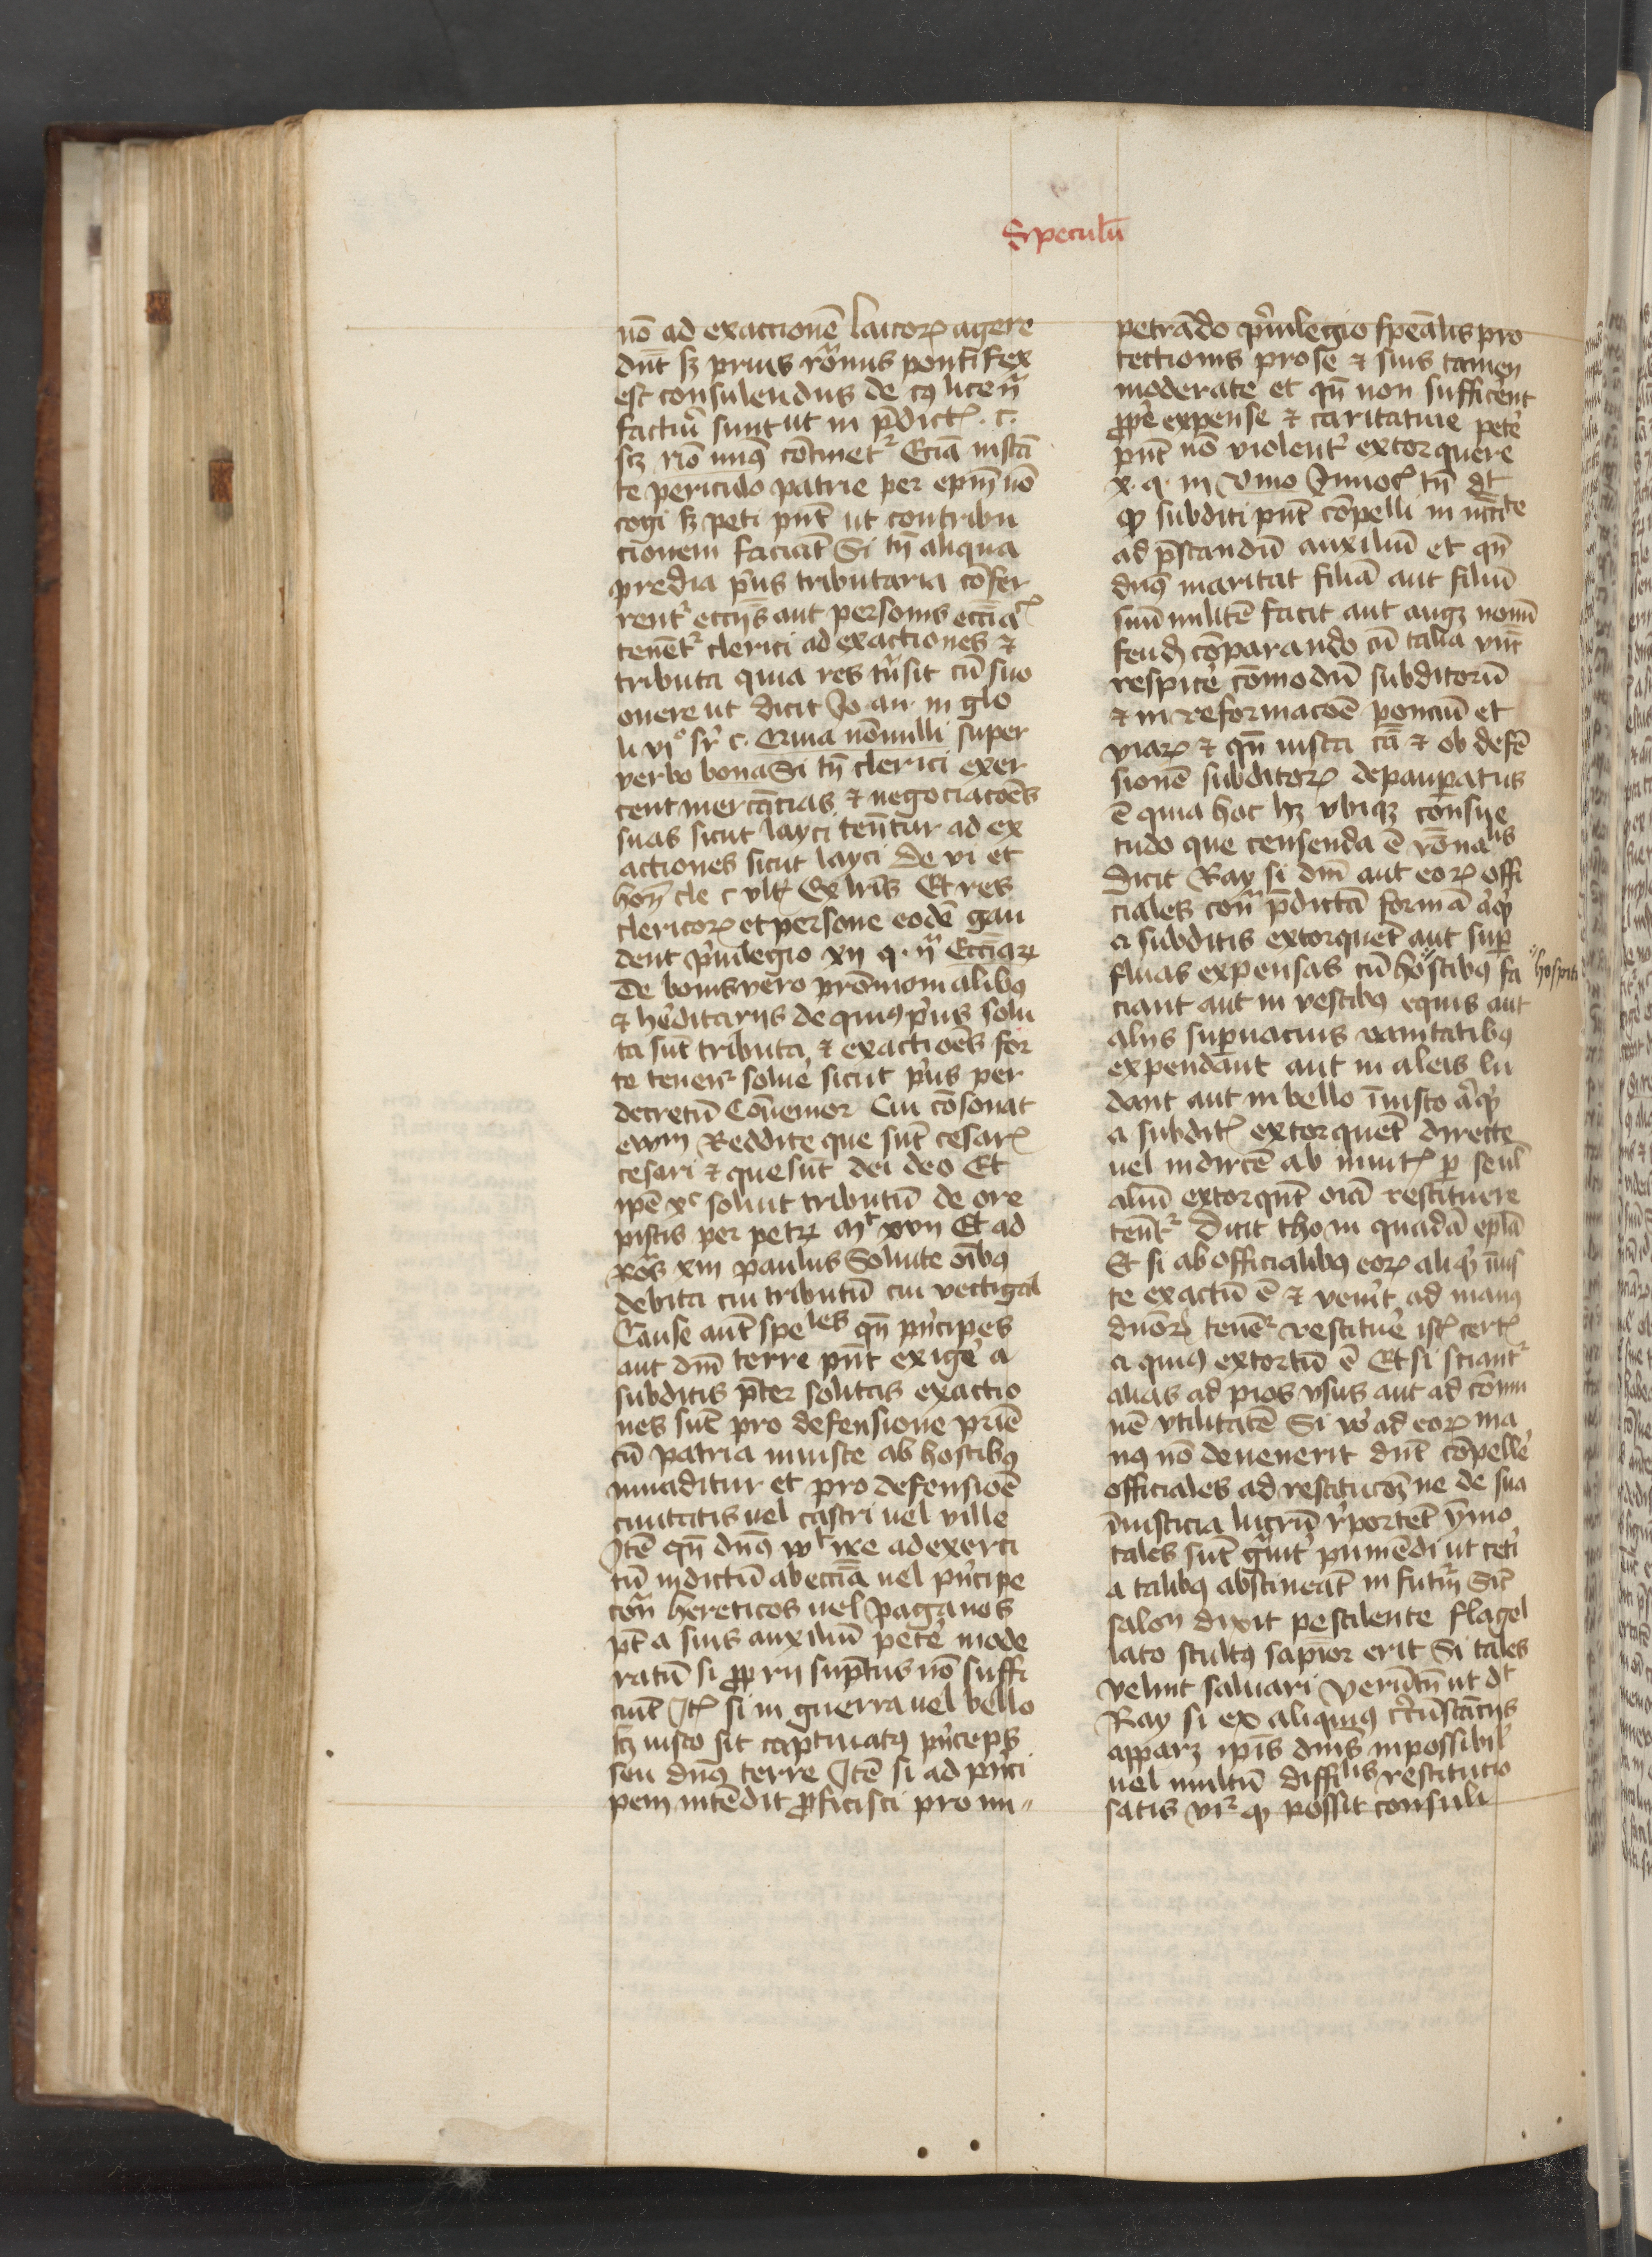 Speculū
nō ad exactionē laicorꝝ agere
dn̄t sꝫ prius rōnus pontifex
est consulendus de cuꝰ licen̄
facturi sunt ut in p̄dict᷒ . c .
scꝫ nō minꝰ cōtinet᷑ Eciā instā
te periculo patrie per ep̄m nō
cogi sꝫ peti pn̄t ut contribu
cionem faciāt Si tn̄ aliqua
predia pͥus tributaria cōfer
rent᷑ ecc̄ijs aut personis ecc̄ia᷒
tenēt᷑ clerici ad exactiones ⁊
tributa quia res tn̄sit cū suo
onere ut dicit Jo an in glo
li vjͦ sͬ c . Quia nōnulli super
verbo bona Si tn̄ clerici exer
cent mercācias ⁊ negociacōēs
suas sicut layci ten̄tur ad ex
actiones sicut layci de vi et
hon̄ cle c vlt᷒ Ex lr̄is Et res
clericoꝝ et persone eodē gau
dent pͥuilegio xij q . ij Ecc̄iaꝝ
De bonis vero prōmonialibꝰ
⁊ hēditarijs de quibꝰ pͥus solu
ta sūt tributa ⁊ exactiōēs for
te tenēt᷑ solue᷑ sicut pͥus per
decretū Conuenior Cui cōsonat
ewm Reddite que sūt cesar᷒
cesari ⁊ que sūt dei deo Et
ip̄e xͨ soluit tributū de ore
piscis per petꝝ mͭ xvij Et ad
Roͣs xiij paulus Soluite oībꝰ
debita cui tributū cui vectigal
Cause aūt speˡᵉˢ qn̄ pͥncipes
aut dn̄i terre pn̄t exige᷑ a
subditis p̄ter solitas exactio
nes sūt pro defensione pr̄ie
cū patria iniuste ab hostibꝰ
inuaditur et pro defensiōē
ciuitatis uel castri uel ville
Jtē qn̄ dn̄s wlt ire ad exerci
tū indictū ab ecc̄ia uel pͥncipe
con̄ hereticos uel paganos
pt̄ a suis auxiliū pete᷑ mode
ratū si ꝓprij sūptus nō suffi
ciūt Jt᷒ si in guerra uel bello
sꝫ iusto sit captiuatꝰ pͥnceps
seu dn̄s terre Jtē si ad pͥnci
pem intēdit ꝓficisci pro im〃
petrādo pͥuilegio speālis pro
tectionis pro se ⁊ suis tamen
moderate et qn̄ non sufficent
ꝓpe᷑ expense ⁊ caritatiue pete᷑
pn̄t nō violent᷑ extorquere
x . q . iij Vnio Jnnoc᷒ tn̄ dt
ꝙ subditi pn̄t cōpelli in nēcite
ad p̄standū auxiliū et qn̄
dn̄s maritat filiā aut filiū
suū militē facit aut augꝫ nouū
feudū cōparando cū talia vnt̄
respice᷑ cōmodū subditorū
⁊ in reformacōē ponciū et
viaꝝ ⁊ qn̄ iusta cā ⁊ ob defē
sionē subditoꝝ depaup̄atus
ē quia hoc hꝫ vbiqꝫ consue
tudo que censenda ē rōnaˡⁱˢ
Dicit Ray si dn̄i aut eoꝝ offi
ciales con̄ p̄dictā formā aͥqͥd
a subditis extorquēt aut suꝑ
fluas expensas cū ho〃stibꝰ fa
〃hospiti
ciant aut in vestibꝰ equis aut
alijs suꝑuacuis vanitatibꝰ
expendant aut in aleis lu
dant aut in bello iniusto aͥqͥd
a subdit᷒ extorquēt directe
uel indirecē ab inuit᷒ ꝑ se ul̄
aliū extorqn̄t oīa restituere
ten̄t᷑ Dicit tho in quadā epl̄a
Et si ab officialibꝰ eoꝝ aliqͥd īius
te exactū ē ⁊ venit ad manꝰ
dn̄oꝝ tenēt᷑ restitue᷑ ist᷒ cert᷒
a quibꝰ extortū ē Et si sciant᷑
alias ad pios vsus aut ad cōmu
nē vtilitatē Si vͦ ad eoꝝ ma
nꝰ nō deuenerit dn̄t cōpelle᷑
officiales ad restitucōꝫ ne de sua
īniusticia lucrū rͤportēt ymo
tales sūt gͣuit᷑ puniēdi ut cet᷑i
a talibꝰ abstineāt in futuꝝ Sic̄
salon dixit pestilente flagel
lato stultꝰ sapīor erit Si tales
velint saluari Verūtn̄ ut dt
Ray si ex aliquibꝰ circūstācijs
apparꝫ ip̄is dn̄is inpossibil᷒
uel multū diffiˡⁱˢ restitucio
satis vi᷑ ꝙ possit consuli